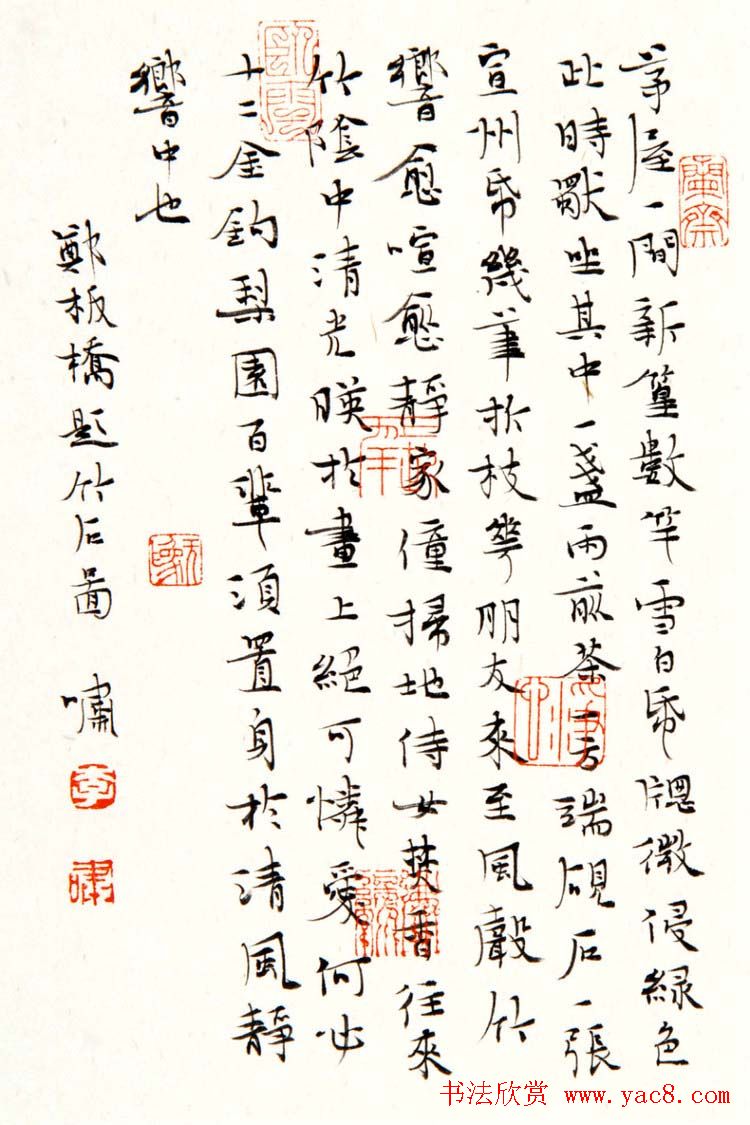 茅屋一間新篁數竿雪白帋牕微侵綠色
此時獨坐其中一盞雨前茶一方端硯石一張
宣州帋幾筆折枝華朋友來至風聲竹
響愈喧愈靜家僮掃地侍女焚香往來
竹陰中清光暎於畫上絕可憐愛何必
十二金釵梨園百輩須置身於清風靜
響中也
鄭板橋題竹石圖 嘯
書法欣赏 www.yac8.com